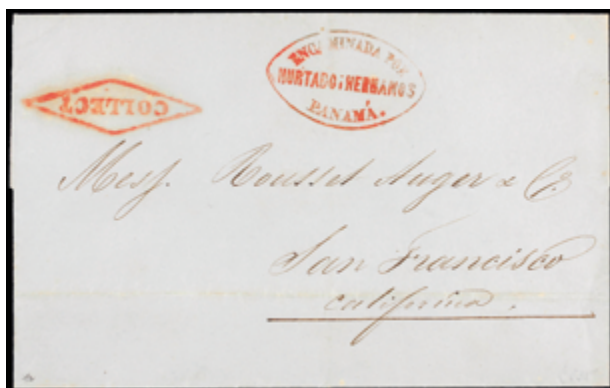 ENCAMINADA POR
HURTADO Y HERMANOS
PANAMÁ.
COLLECT
Messs. Rousset Auger & Co
San Francisco
California.